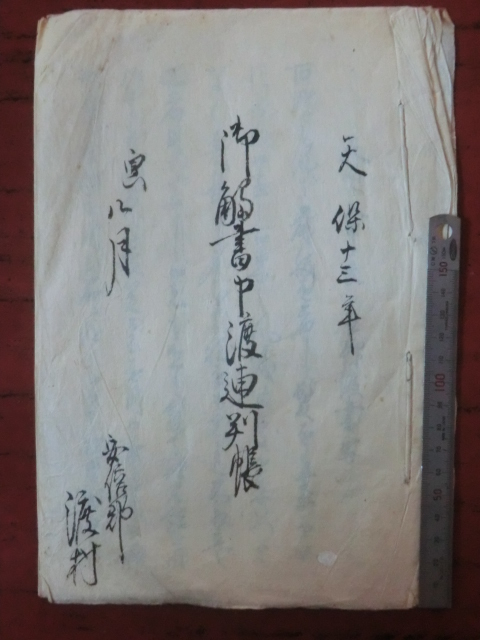 天保十三年
御觸書申渡連判帳
寅八月
安倍郡
渡村
150
100
50